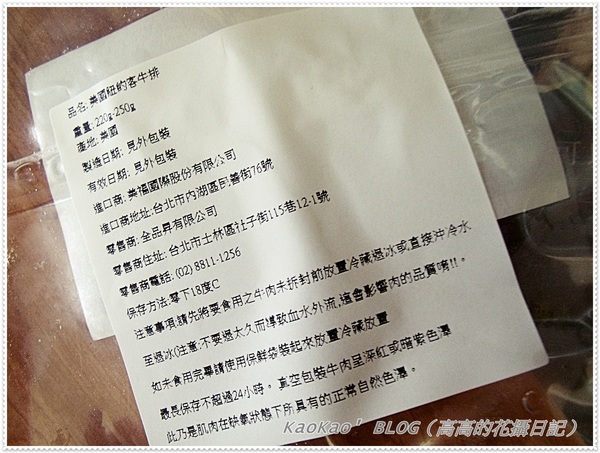 品名: 美國紐約客牛排
重量: 220g-250g
產地: 美國
製造日期: 見外包裝
有效日期: 見外包裝
進口商: 美福國際股份有限公司
進口商地址: 台北市內湖區行善街76號
零售商: 全品昇有限公司
零售商住址: 台北市士林區社子街115巷12-1號
零售商電話: (02) 8811-1256
保存方法:零下18度C
注意事項:請先將要食用之牛肉未拆封前放置冷藏退冰或直接沖冷水
至退冰(注意:不要退太久而導致血水外流,這會影響肉的品質唷!!。
如未食用完畢請使用保鮮袋裝起來放置冷藏放置
最長保存不超過24小時。 真空包裝牛肉呈深紅或暗紫色澤
此乃是肌肉在缺氧狀態下所具有的正常自然色澤。
KaoKao’ BLOG（高高的花猴日記）